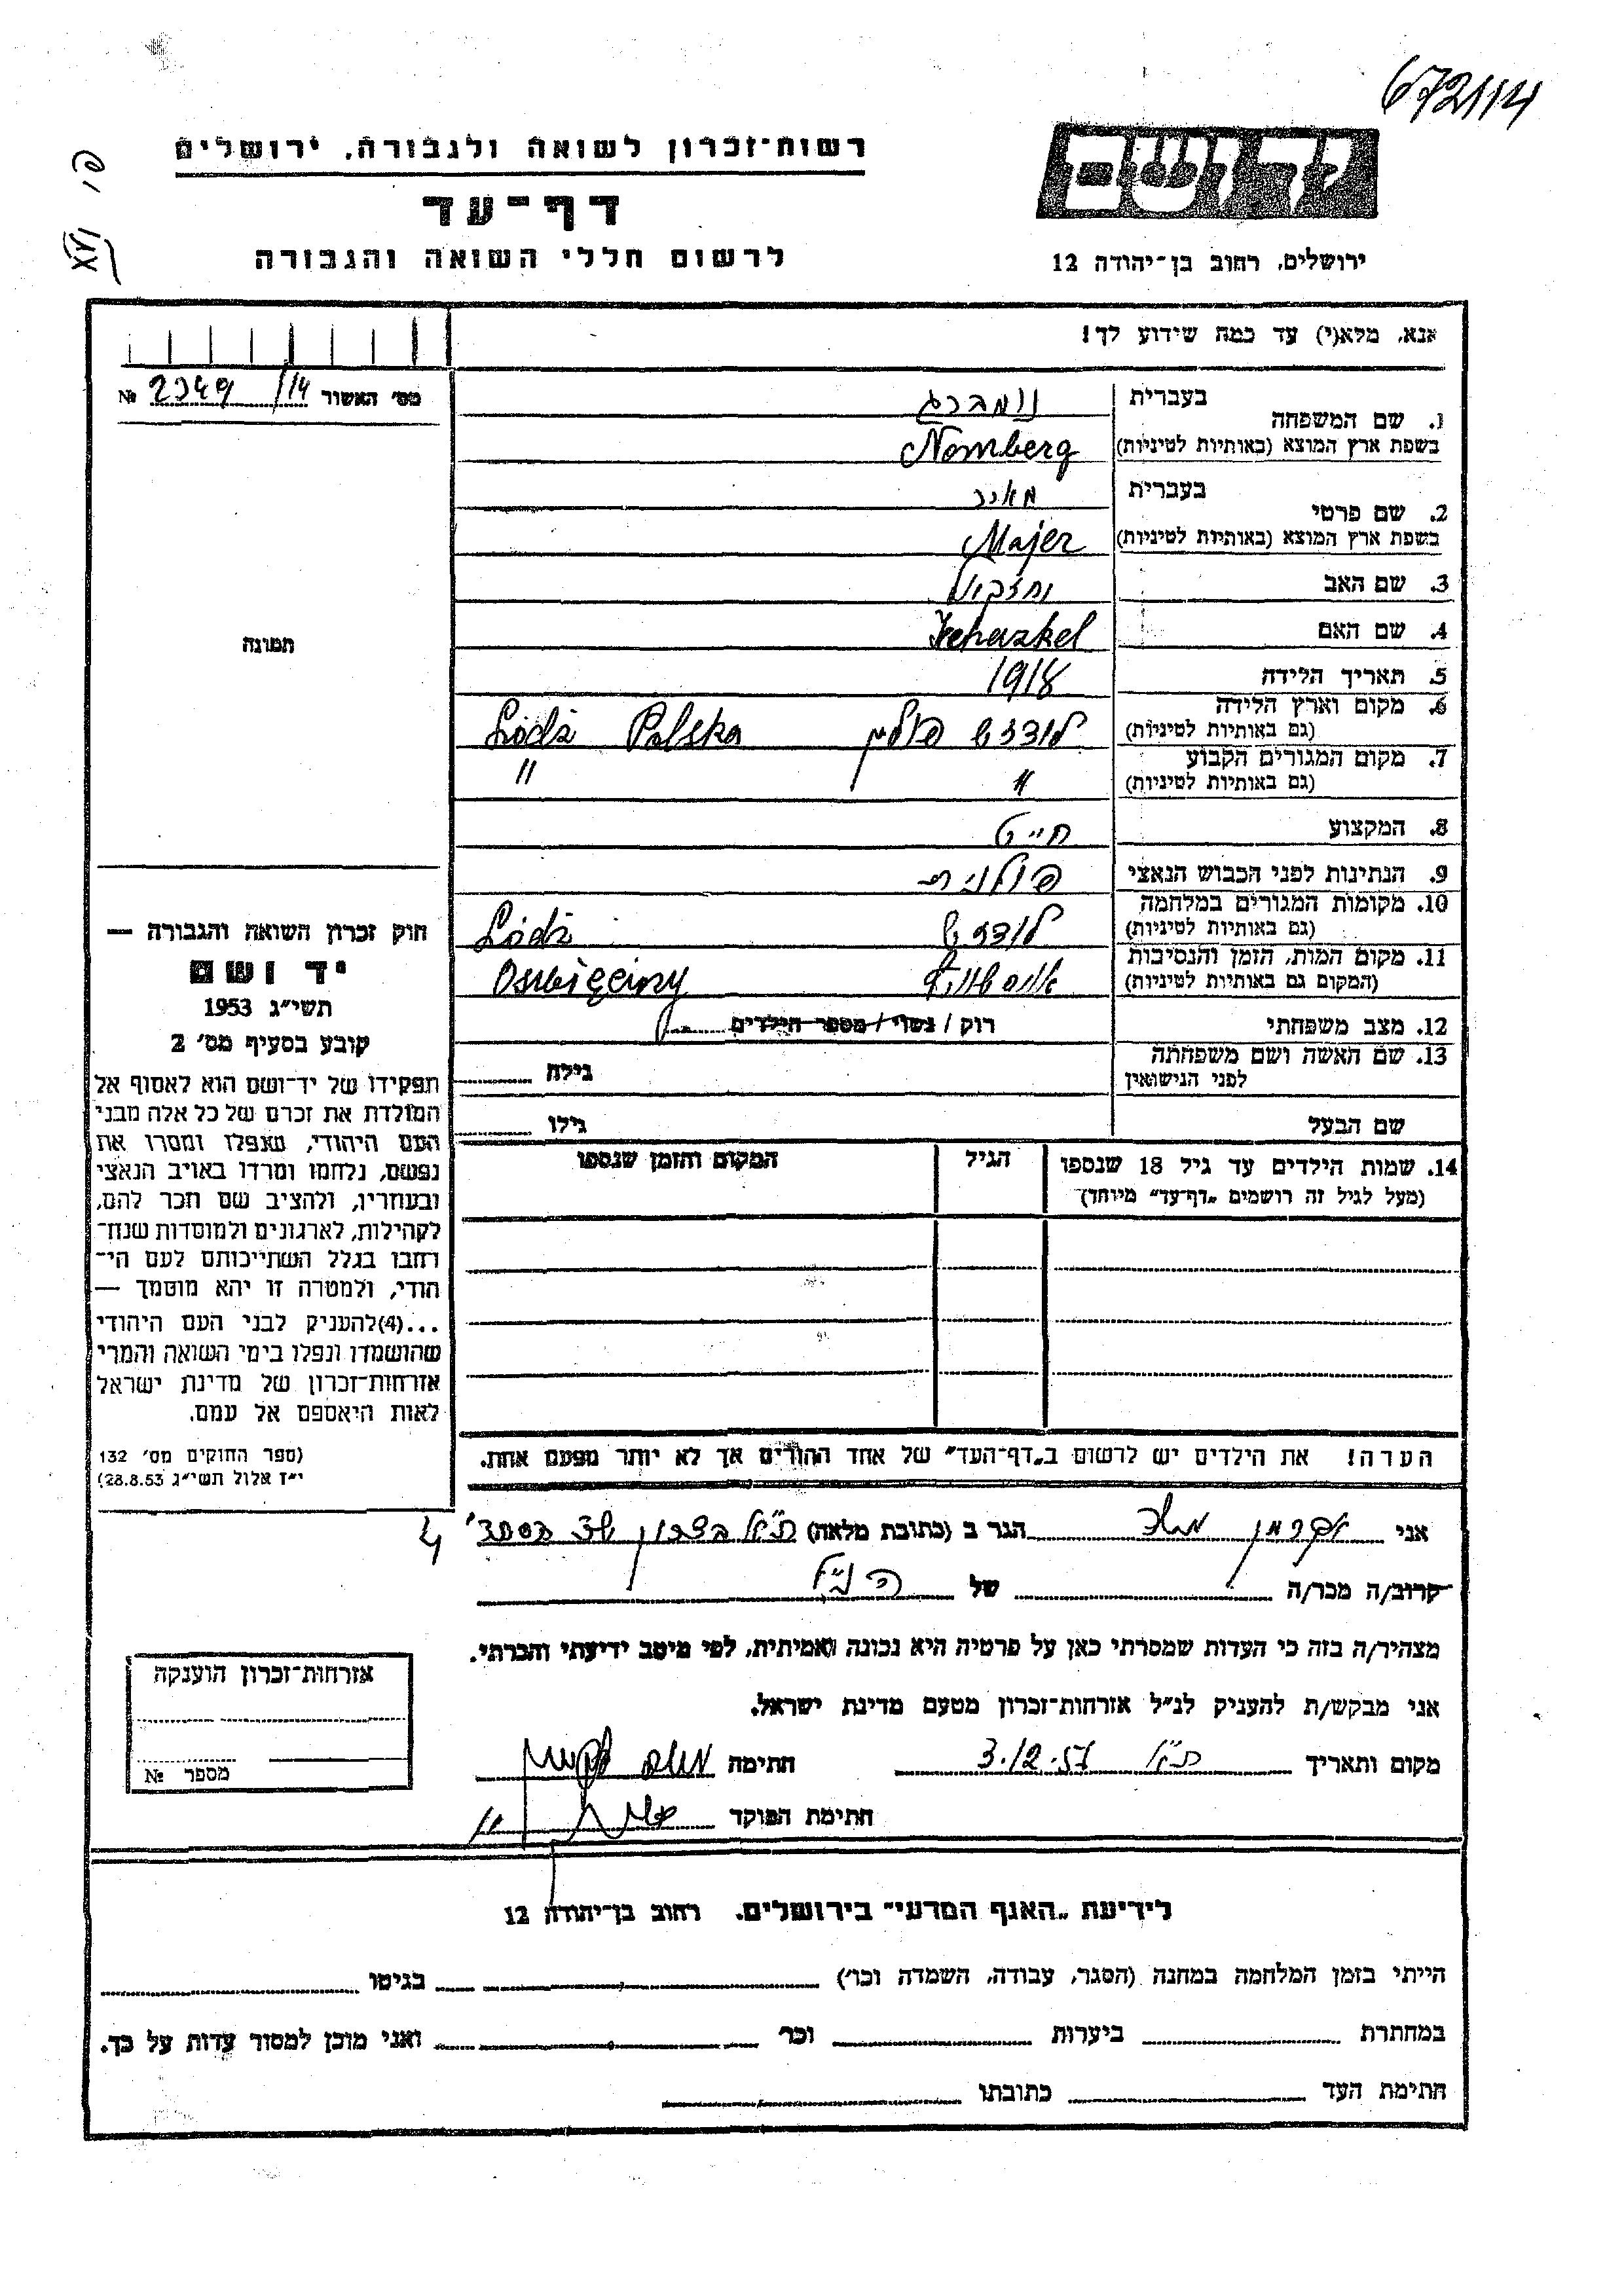 672114
רשות־זכרון לשואה ולגבורה, ירושלים
דף־עד
לרשום חללי השואה והגבורה
ירושלים, רחוב בן־יהודה 12
אנא, מלא(י) עד כמה שידוע לך!
מס׳ האשור 2349/14 №
1. שם המשפחה
בעברית נומברג
בשפת ארץ המוצא (באותיות לטיניות) Nomberg
2. שם פרטי
בעברית מאיר
בשפת ארץ המוצא (באותיות לטיניות) Majer
3. שם האב יחזקאל
4. שם האם Jechezkel
5. תאריך הלידה 1918
6. מקום וארץ הלידה
(גם באותיות לטיניות) לודז׳ פולין Polska Łódż
7. מקום המגורים הקבוע
(גם באותיות לטיניות) " "
8. המקצוע חייט
9. הנתינות לפני הכבוש הנאצי פולנית
10. מקומות המגורים במלחמה
(גם באותיות לטיניות) Łódż
11. מקום המות, הזמן והנסיבות
(המקום גם באותיות לטיניות)
12. מצב משפחתי רוק / נשוי / מספר הילדים
13. שם האשה ושם משפחתה
לפני הנישואין
גילה
שם הבעל
גילו
14. שמות הילדים עד גיל 18 שנספו
(מעל לגיל זה רושמים „דף־עד״ מיוחד)
הגיל
המקום והזמן שנספו
הערה! את הילדים יש לרשום ב„דף־העד״ של אחד ההורים אך לא יותר מפעם אחת.
תמונה
חוק זכרון השואה והגבורה —
יד ושם
תשי״ג 1953
קובע בסעיף מס׳ 2
תפקידו של יד־ושם הוא לאסוף אל
המולדת את זכרם של כל אלה מבני
העם היהודי, שנפלו ומסרו את
נפשם, נלחמו ומרדו באויב הנאצי
ובעוזריו, ולהציב שם וזכר להם,
לקהילות, לארגונים ולמוסדות שנח־
רבו בגלל השתייכותם לעם הי־
הודי, ולמטרה זו יהא מוסמך —
...(4)להעניק לבני העם היהודי
שהושמדו ונפלו בימי השואה והמרי
אזרחות־זכרון של מדינת ישראל
לאות היאספם אל עמם.
(ספר החוקים מס׳ 132
י״ז אלול תשי״ג 28.8.53)
אני הגר ב (כתובת מלאה) ת״א
קרוב/ה מכר/ה של הנ״ל
מצהיר/ה בזה כי העדות שמסרתי כאן על פרטיה היא נכונה ואמיתית, לפי מיטב ידיעתי והכרתי.
אני מבקש/ת להעניק לנ״ל אזרחות־זכרון מטעם מדינת ישראל.
מקום ותאריך ת״א 3.12.57 חתימה
חתימת הפוקד
אזרחות־זכרון הוענקה
מספר №
לידיעת „האגף המדעי״ בירושלים, רחוב בן־יהודה 12
הייתי בזמן המלחמה במחנה (הסגר, עבודה, השמדה וכו׳) בגיטו
במחתרת ביערות וכו׳ ואני מוכן למסור עדות על כך.
חתימת העד כתובתו